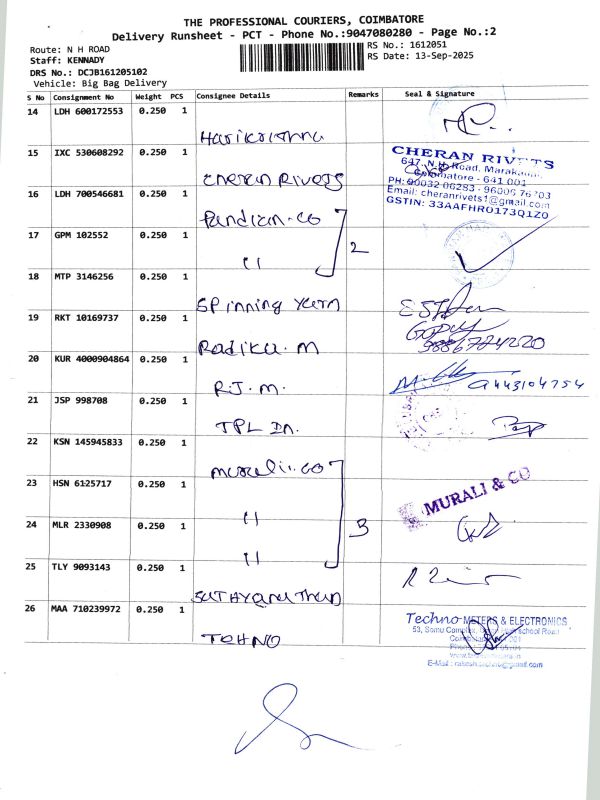 THE PROFESSIONAL COURIERS, COIMBATORE
Delivery Runsheet - PCT - Phone No.:9047080280 - Page No.:2
Route: N H ROAD
RS No.: 1612051
Staff: KENNADY
RS Date: 13-Sep-2025
DRS No.: DCJB161205102
Vehicle: Big Bag Delivery
S No Consignment No Weight PCS Consignee Details Remarks Seal & Signature
14 LDH 600172553 0.250 1
Harikrishna
15 IXC 530608292 0.250 1
Cheran Rivets
CHERAN RIVETS
647, N.H. Road, Marakadai,
Coimbatore - 641 001
PH: 90032 06283 - 96006 76703
Email: cheranrivets1@gmail.com
GSTIN: 33AAFHR0173Q1Z0
16 LDH 700546681 0.250 1
Pandian.co
17 GPM 102552 0.250 1
11
2
18 MTP 3146256 0.250 1
Spinning Yarn
19 RKT 10169737 0.250 1
Radika.M
9886724220
20 KUR 4000904864 0.250 1
R.J.M.
9443104754
21 JSP 998708 0.250 1
TPL In.
22 KSN 145945833 0.250 1
murali.co
23 HSN 6125717 0.250 1
11
MURALI & CO
24 MLR 2330908 0.250 1
11
3
25 TLY 9093143 0.250 1
Sathyanathan
26 MAA 710239972 0.250 1
TEHNO
Techno METERS & ELECTRONICS
53, Somu Complex, school Road